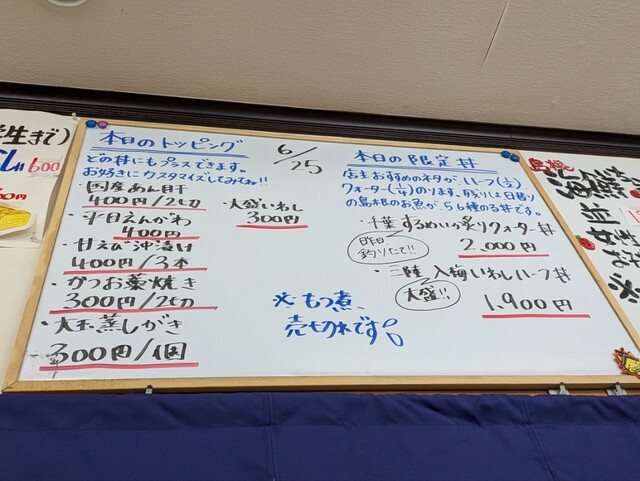 学生まで)
600
本日のトッピング
6/25
どの丼にもプラスできます。
お好きにカスタマイズしてみてね!!
・国産あん肝
400円/2切
・大盛いわし
300円
・平目えんがわ
400円
・甘えび沖漬け
400円/3本
・かつお藁焼き
300円/2切
・大玉蒸しがき
300円/1個
※もつ煮、
売切れです。
本日の限定丼
店主おすすめのネタが、ハーフ(1/2)、
クォーター(1/4)のります。残りは日替り
の島根のお魚が、5、6種のる丼です。
・千葉するめいか炙りクォーター丼
昨日釣りたて!!
2.000円
・三陸入梅いわしハーフ丼
大盛!!
1.900円
島根
海鮮
並
女性